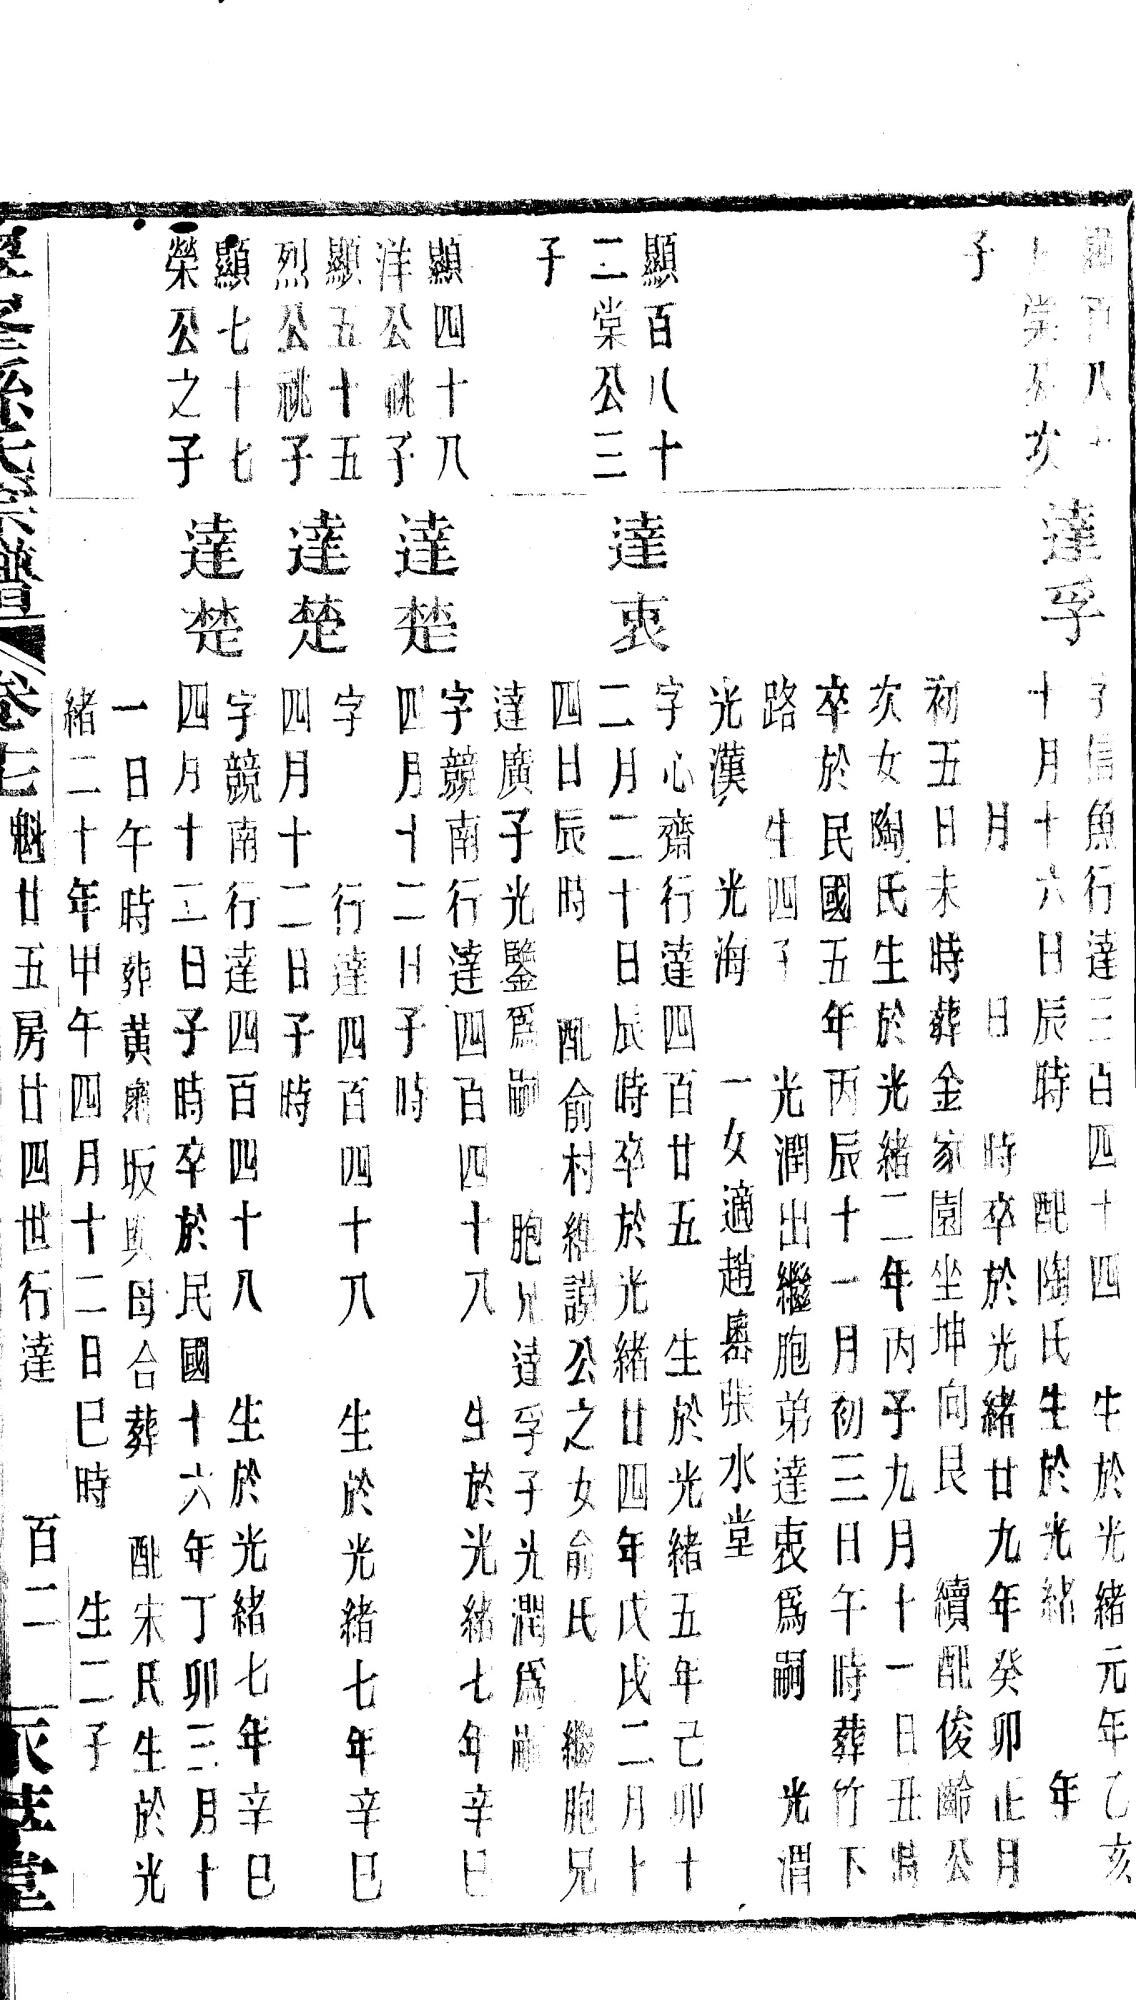 百八十
棠公次
子
達孚
字信魚行達三百四十四 生於光緒元年乙亥
十月十六日辰時 配陶氏生於光緒 年
月 日 時卒於光緒廿九年癸卯正月
初五日未時葬金家園坐坤向艮 續配俊齡公
次女陶氏生於光緒二年丙子九月十一日丑時
卒於民國五年丙辰十一月初三日午時葬竹下
路 生四子 光潤出繼胞弟達衷爲嗣 光渭
光漢 光海 一女適趙嶴張水堂
顯百八十
二棠公三
子
達衷
字心齋行達四百廿五 生於光緒五年己卯十
二月二十日辰時卒於光緒廿四年戊戌二月十
四日辰時 配俞村維謨公之女俞氏 繼胞兄
達廣子光鑒爲嗣 胞兄達孚子光潤爲嗣
顯四十八
洋公祧子
達楚
字競南行達四百四十八 生於光緒七年辛巳
四月十二日子時
顯五十五
烈公祧子
達楚
字 行達四百四十八 生於光緒七年辛巳
四月十二日子時
顯七十七
榮公之子
達楚
字競南行達四百四十八 生於光緒七年辛巳
四月十二日子時卒於民國十六年丁卯三月十
一日午時葬黃 坂與母合葬 配宋氏生於光
緒二十年甲午四月十二日巳時 生二子
孫氏宗譜 卷七 魁廿五房廿四世行達 百二 堂